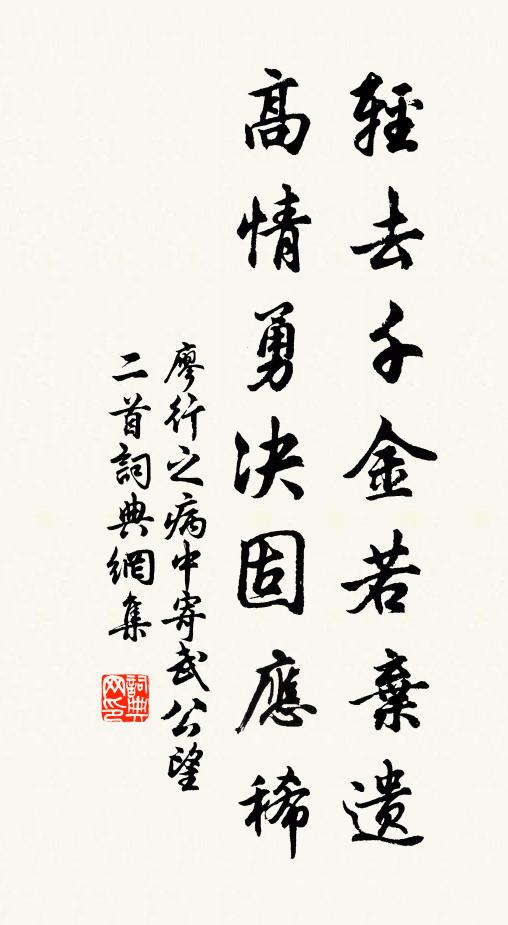 輕去千金若棄遺
高情勇決固應稀
廖行之病中寄武公望
二首詞典網集
詞典
网印